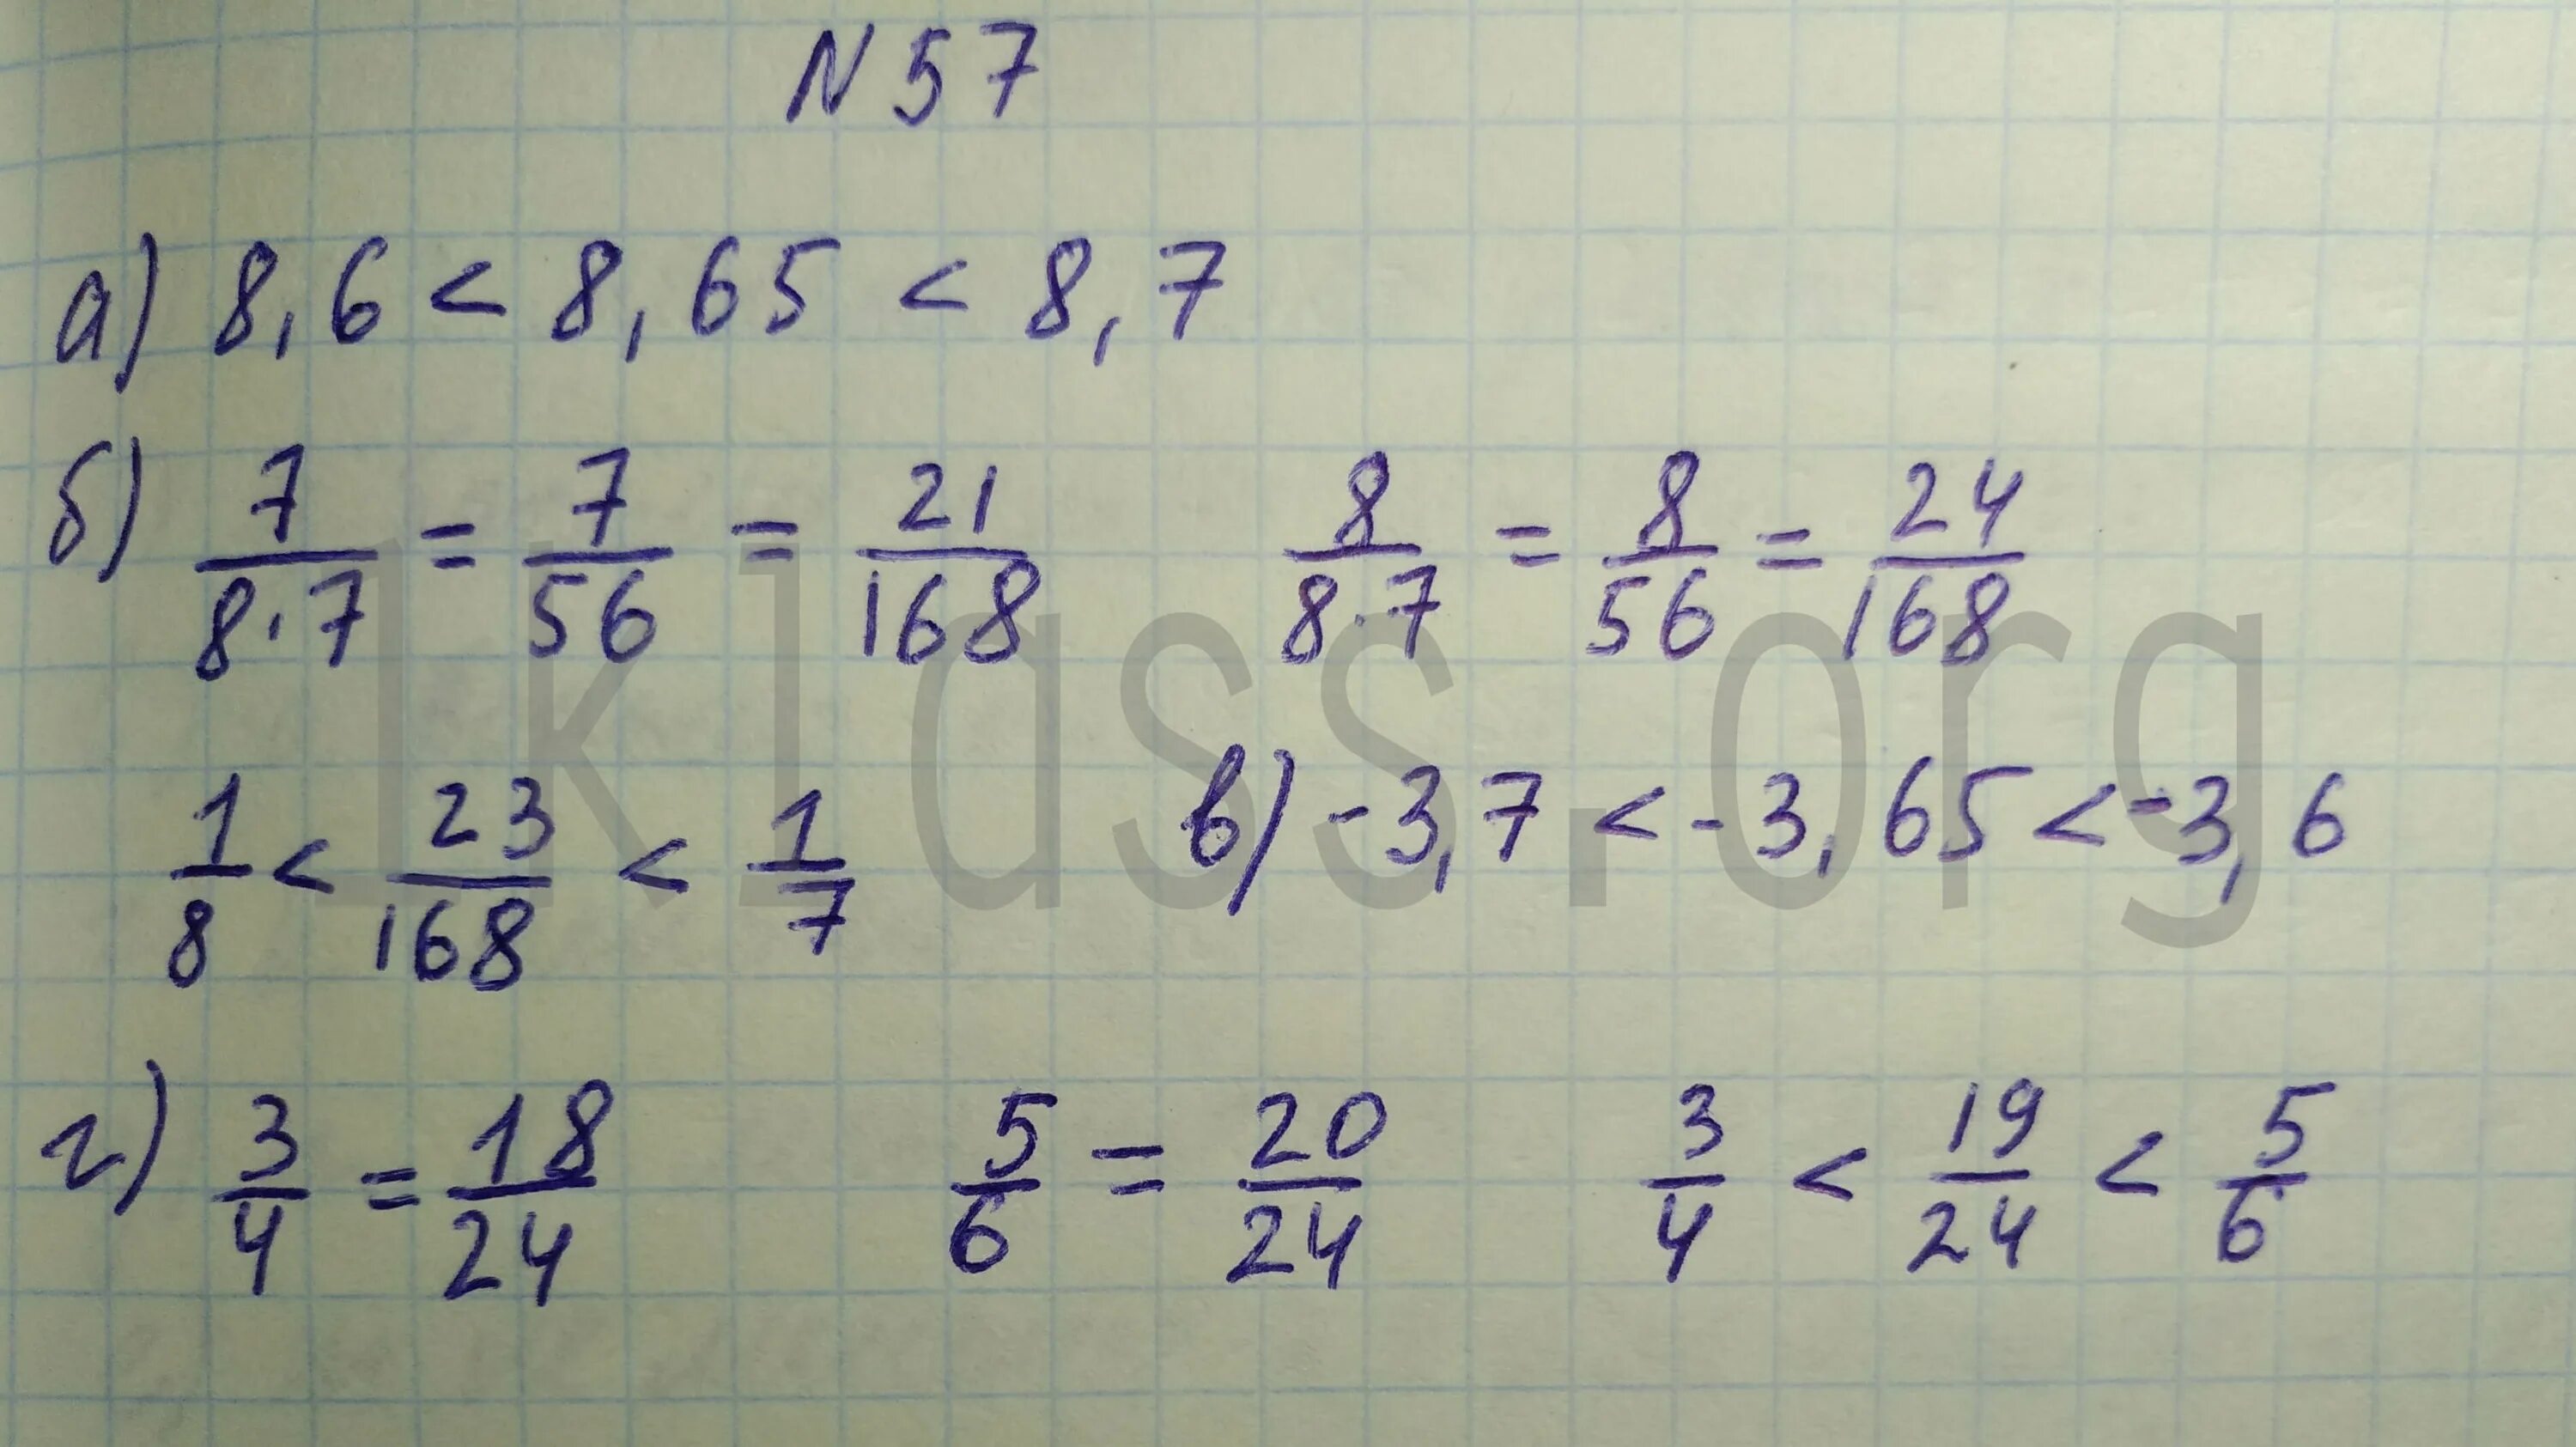 N 57
а) 8,6 < 8,65 < 8,7
б) 7/(8·7) = 7/56 = 21/168   8/(8·7) = 8/56 = 24/168
1/8 < 23/168 < 1/7   в) -3,7 < -3,65 < -3,6
г) 3/4 = 18/24   5/6 = 20/24   3/4 < 19/24 < 5/6
lklass.org